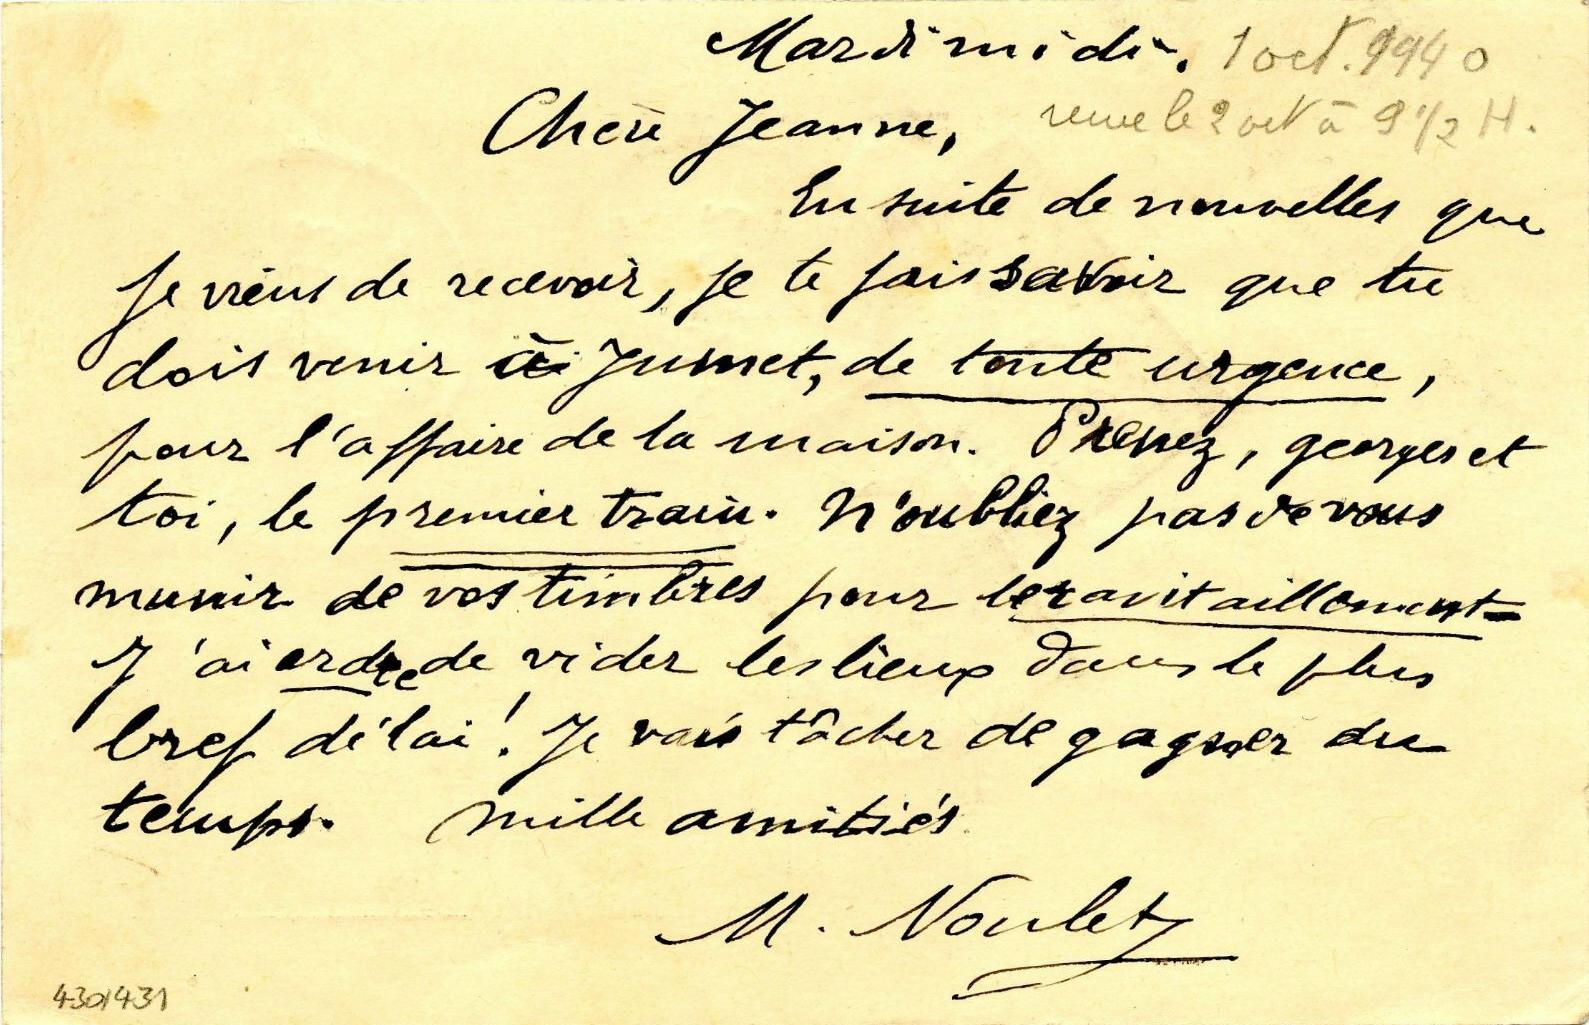 Mardi midi. 1 oct. 1940
Chère Jeanne, reçue le 2 oct à 9 1/2 H.
En suite de nouvelles que
je viens de recevoir, je te fais savoir que tu
dois venir à Jumet, de toute urgence,
pour l'affaire de la maison. Prenez, Georges et
toi, le premier train. N'oubliez pas de vous
munir de vos timbres pour le ravitaillement.
J'ai ordre de vider les lieux dans le plus
bref délai! Je vais tâcher de gagner du
temps. Mille amitiés
M. Noulet
430/431